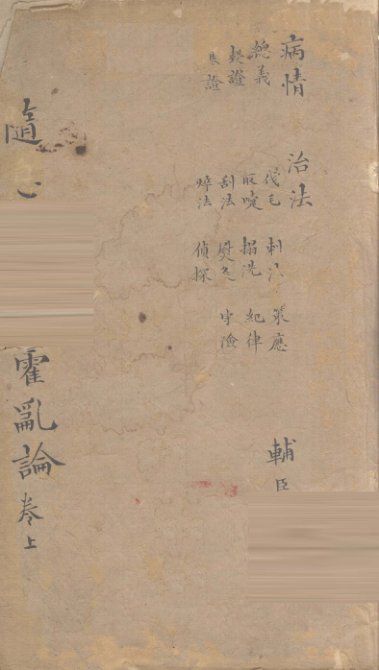 病情
總義
熱證
證
治法
伐毛 刺 策應
取嚏 搨洗 紀律
刮法 熨灸 守險
焠法 偵探
輔臣
隨
霍亂論卷上